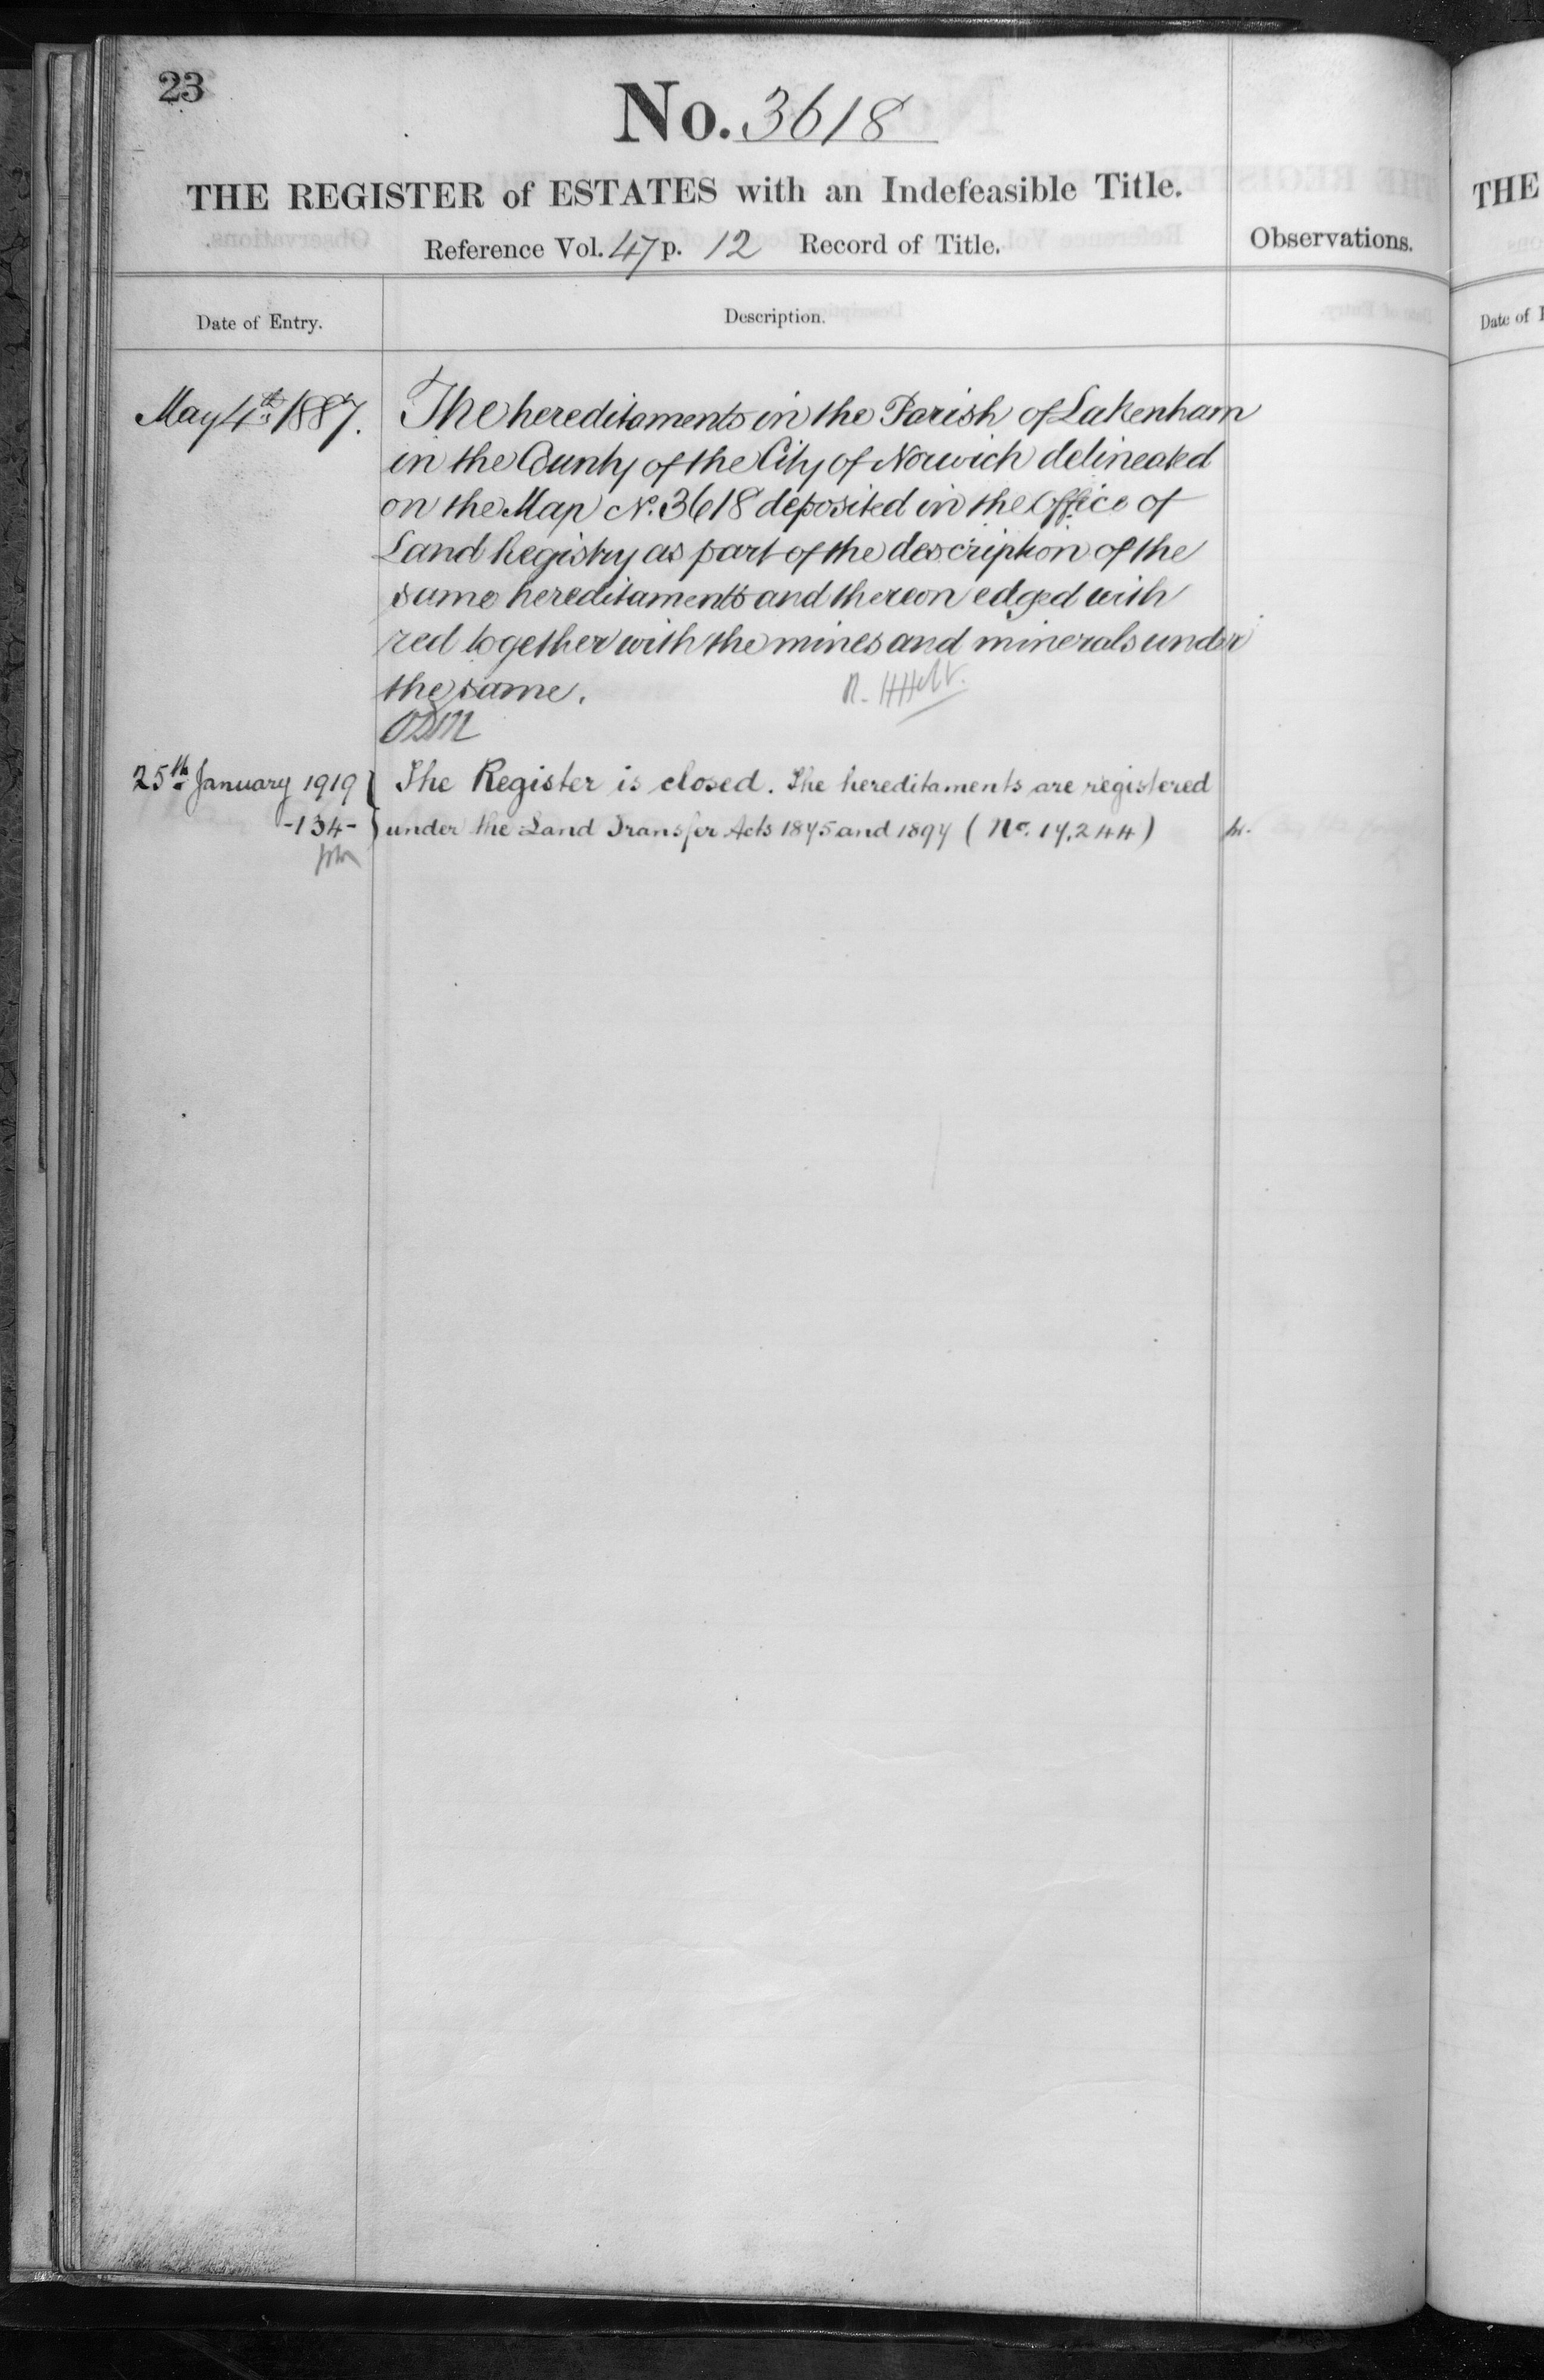 23
No. 3618
THE REGISTER of ESTATES with an Indefeasible Title.
Reference Vol. 47 p. 12 Record of Title.
Observations.
Date of Entry.
Description.
May 4th 1887.
The hereditaments in the Parish of Lakenham
in the County of the City of Norwich delineated
on the Map No. 3618 deposited in the Office of
Land Registry as part of the description of the
same hereditaments and thereon edged with
red together with the mines and minerals under
the same.
25th January 1919
-134-
The Register is closed. The hereditaments are registered
under the Land Transfer Acts 1875 and 1897 (No. 17,244)
THE
Date of